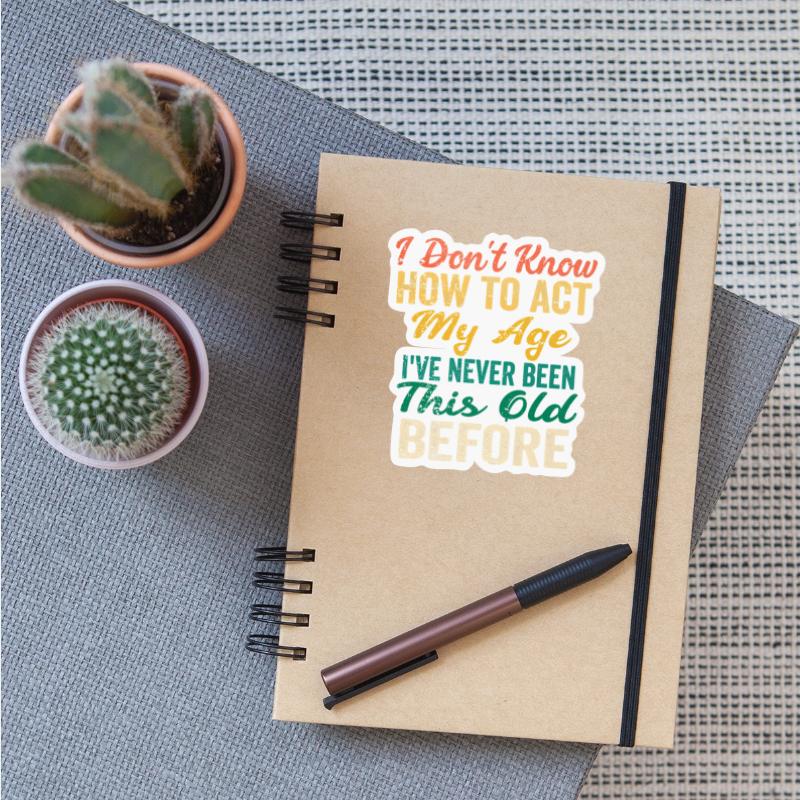 I Don't Know
HOW TO ACT
My Age
I'VE NEVER BEEN
This Old
BEFORE